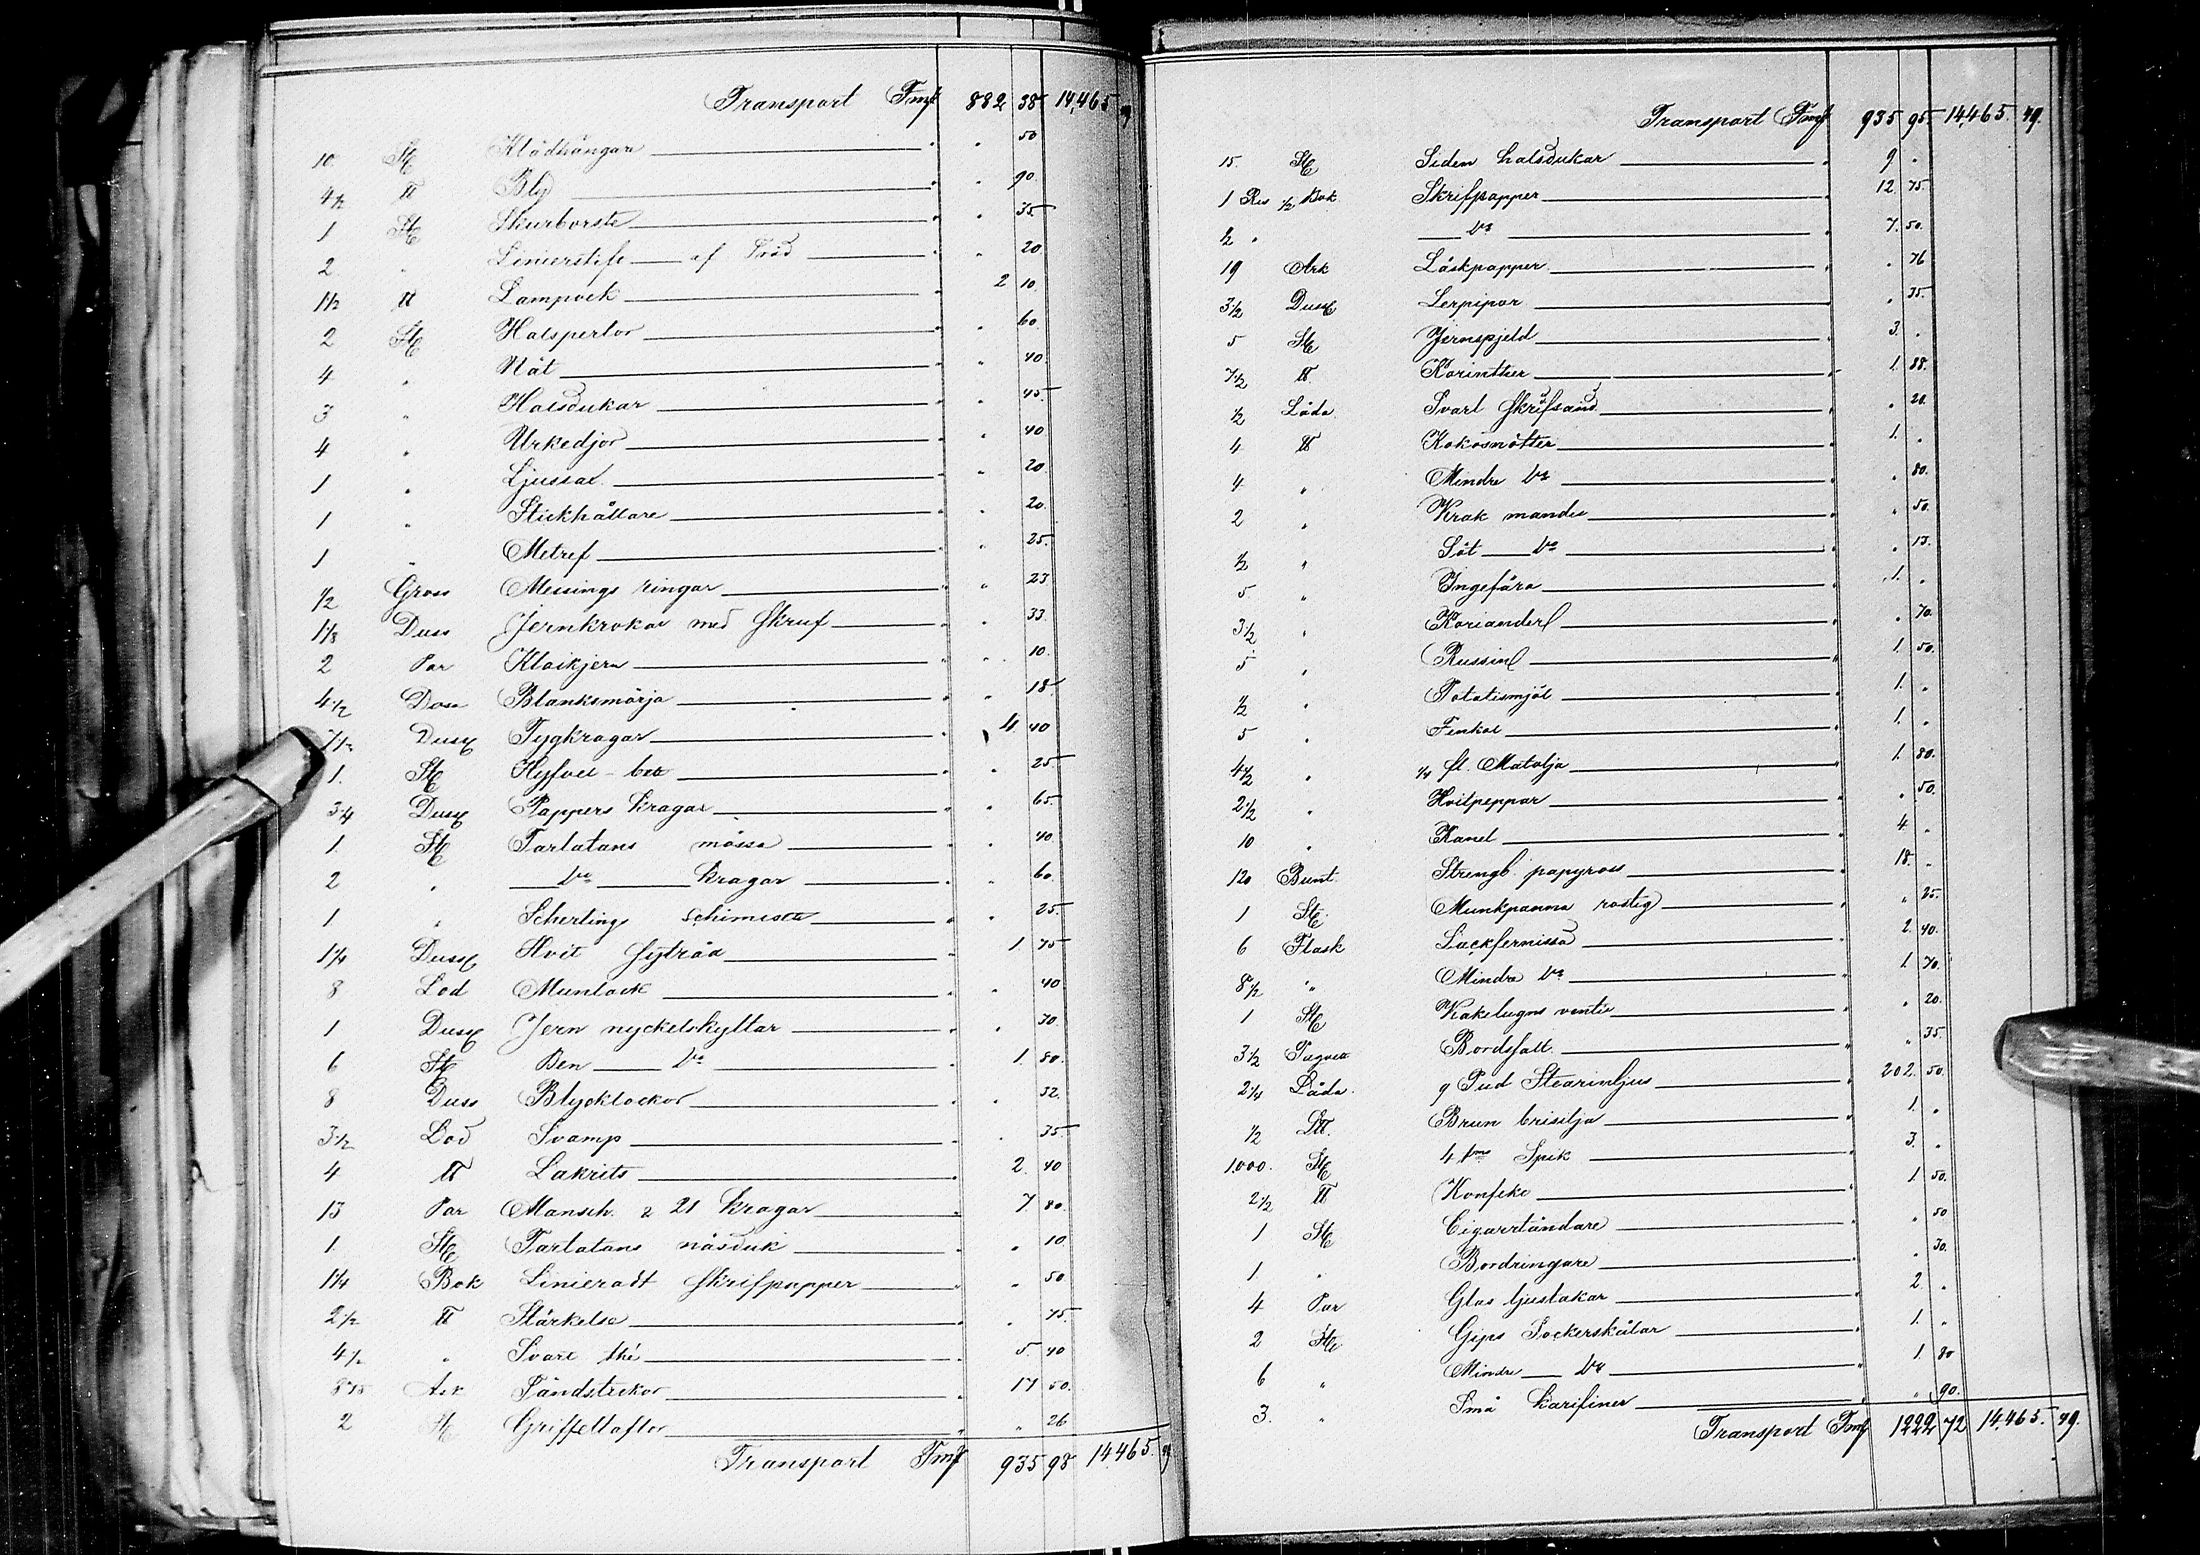 Transport Fmk 882 38 14,465 49
10 St Klädhängare " 50
4 1/2 ℔ Bly " 90
1 St Skurborste " 35
2 " Linierstift af Träd " 20
1 1/2 ℔ Lampvek 2 10
2 St Halsperlor " 60
4 " Nät " 40
3 " Halsdukar " 45
4 " Urkedjor " 40
1 " Ljussax " 20
1 " Stickhållare " 20
1 " Metref " 25
1/2 Gross Messings ringar " 23
1 1/3 Duss Jernkrokar med skruf " 33
2 Par Klackjern " 10
4 1/2 Dosa Blanksmörja " 18
Duss Tygkragar 4 40
1 St Hyfvel-bett " 25
3/4 Duss Pappers kragar " 65
1 St Tarlatans mössa " 40
2 " do kragar " 60
1 " Scherting " 25
1 1/4 Duss Hvit sytråd 1 75
8 Lod Munlack " 40
1 Duss Jern nyckelskyltar " 70
6 St Ben do 1 80
8 Duss Blycklockor " 32
3 1/2 Lod Svamp " 35
4 ℔ Lakrits 2 40
13 Par Mansch. o 21 kragar 7 80
1 St Tarlatans näsduk " 10
1 1/4 Bok Linieradt skrifpapper " 50
2 1/2 ℔ Stärkelse " 75
4 1/2 " Svart thé 5 40
875 Ask Tändstickor 17 50
2 St Griffeltaflor " 26
Transport Fmk 935 98 14,465 49
Transport Fmk 935 95 14,465 49
15 St Siden halsdukar 9 "
1 Ris 1/2 Bok Skrifpapper 12 75
1/2 " do 7 50
19 Ark Läskpapper " 76
3 1/2 Duss Lerpipor " 35
5 St Jernspjeld 3 "
7 1/2 ℔ Korinther 1 88
1/2 Låda Svart skrifsand " 20
4 ℔ Kokosnötter 1 "
4 " Mindre do " 80
2 " Krak mandel " 50
1/2 " Söt do " 13
5 " Ingefära 1 "
3 1/2 " Koriander " 70
5 " Russin 1 50
1/2 " Potatismjöl 1 "
5 " Fenkol 1 "
4 1/2 " 1/4 fl. Matolja 1 80
2 1/2 " Hvitpeppar " 50
10 " Kanel 4 "
120 Bunt Strengb. papyross 18 "
1 St Munkpanna rostig " 25
6 Flask Lackfernissa 2 40
8 1/2 " Mindre do 1 70
1 St Kakelugns ventil " 20
3 1/2 Bordsalt " 35
2 1/4 Låda 9 Pud Stearinljus 202 50
1/2 L℔ Brun brisilja 1 "
1,000 St 4 tms Spik 3 "
2 1/2 ℔ Konfekt 1 50
1 St Cigarrtändare " 50
1 " Bordringare " 30
4 Par Glas ljustakar 2 "
2 St Gips Sockerskålar 1 "
6 " Mindre do 1 80
3 " Små karafiner " 90
Transport Fmk 1222 72 14,465 49